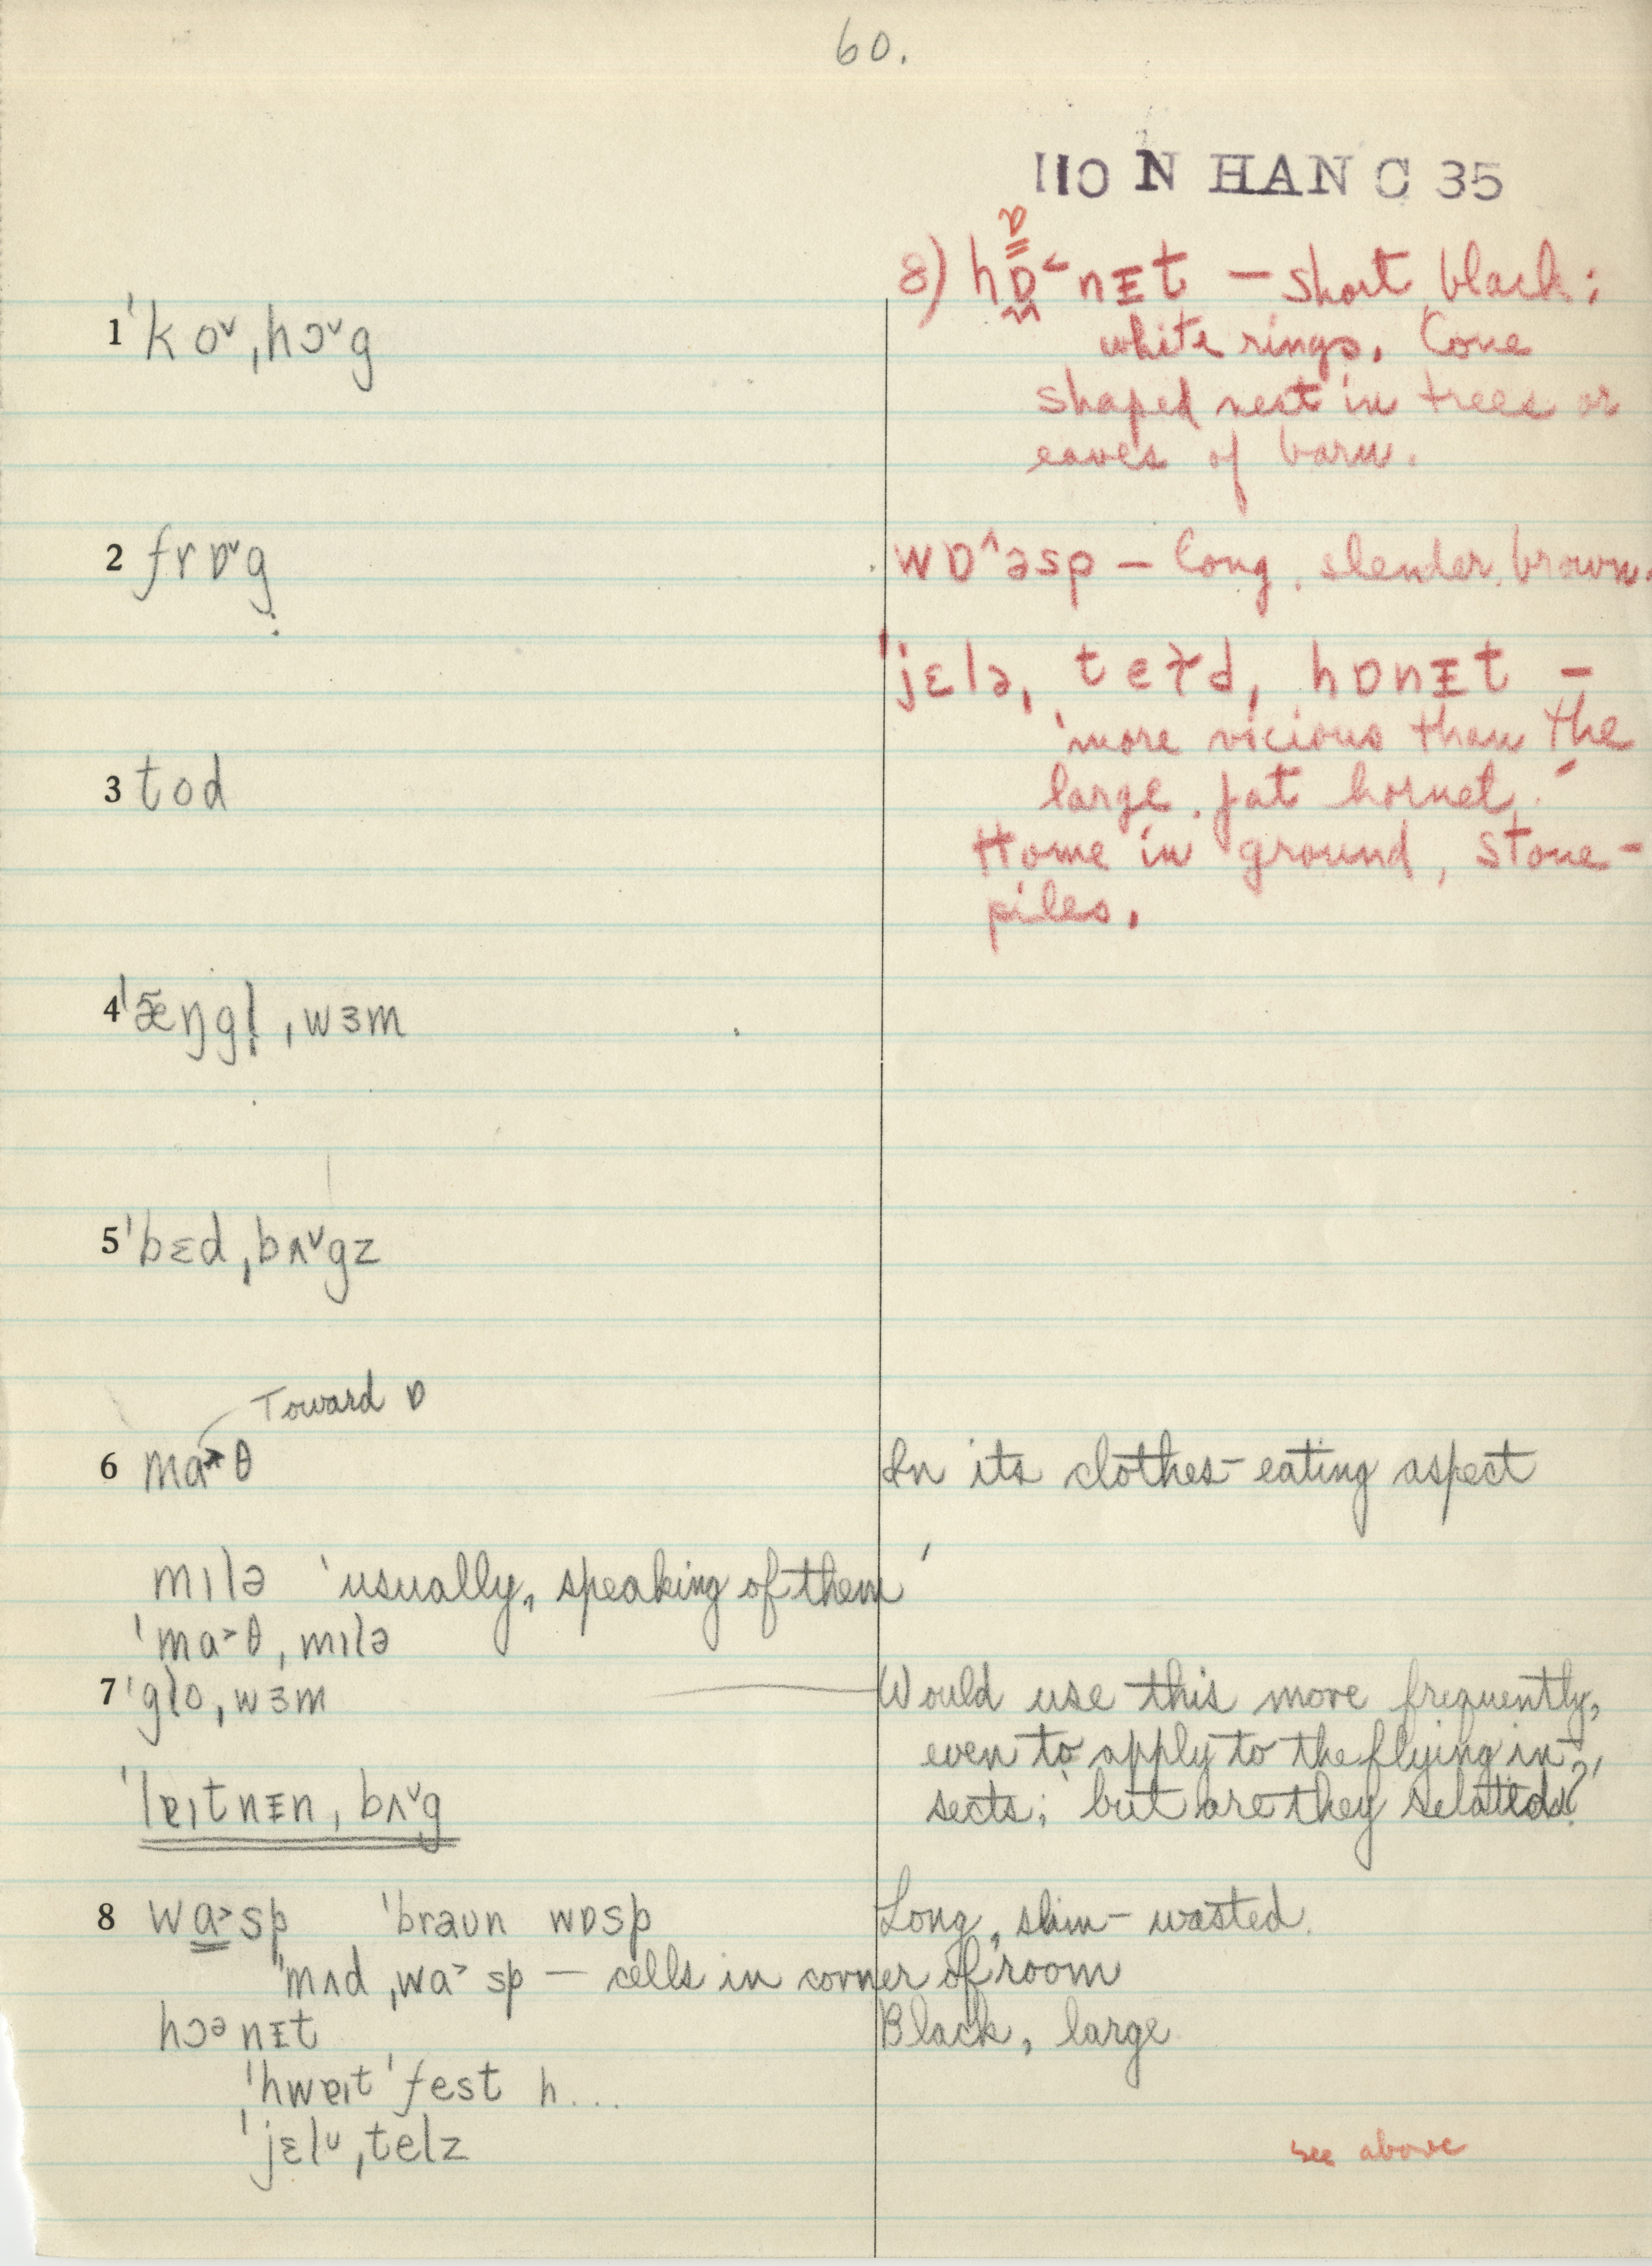 60.
110 N HAN C 35
8) hɒ˂nɪt – short black;
ɒ
white rings. Cone
shaped nest in trees or
eaves of barn.
1 ˈkoˇˌhɔˇg
2 frɒˇg
wɒ^əsp – long, slender, brown.
ˈjɛləˌ teɪdˌ hɒnɪt –
'more vicious than the
large, fat hornet.'
Home in ground, stone-
piles.
3 tod
4 ˈæ̃ŋgl̩ ˌwɜm
5 ˈbɛdˌbʌˇgz
Toward ɒ
6 ma˃θ In its clothes-eating aspect
mɪlə 'usually, speaking of them'
ˈma˃θˌmɪlə
7 ˈgloˌwɜm Would use this more frequently,
even to apply to the flying in-
sects; 'but are they related?'
ˈlɐɪtnɪnˌbʌˇg
8 wa˃sp ˈbraʊn wɒsp Long, slim-wasted.
ˈmʌdˌwa˃sp – cells in corner of room
hɔənɪt Black, large
ˈhwɐɪtˈfest h...
ˈjɛlᴜˌtelz
see above